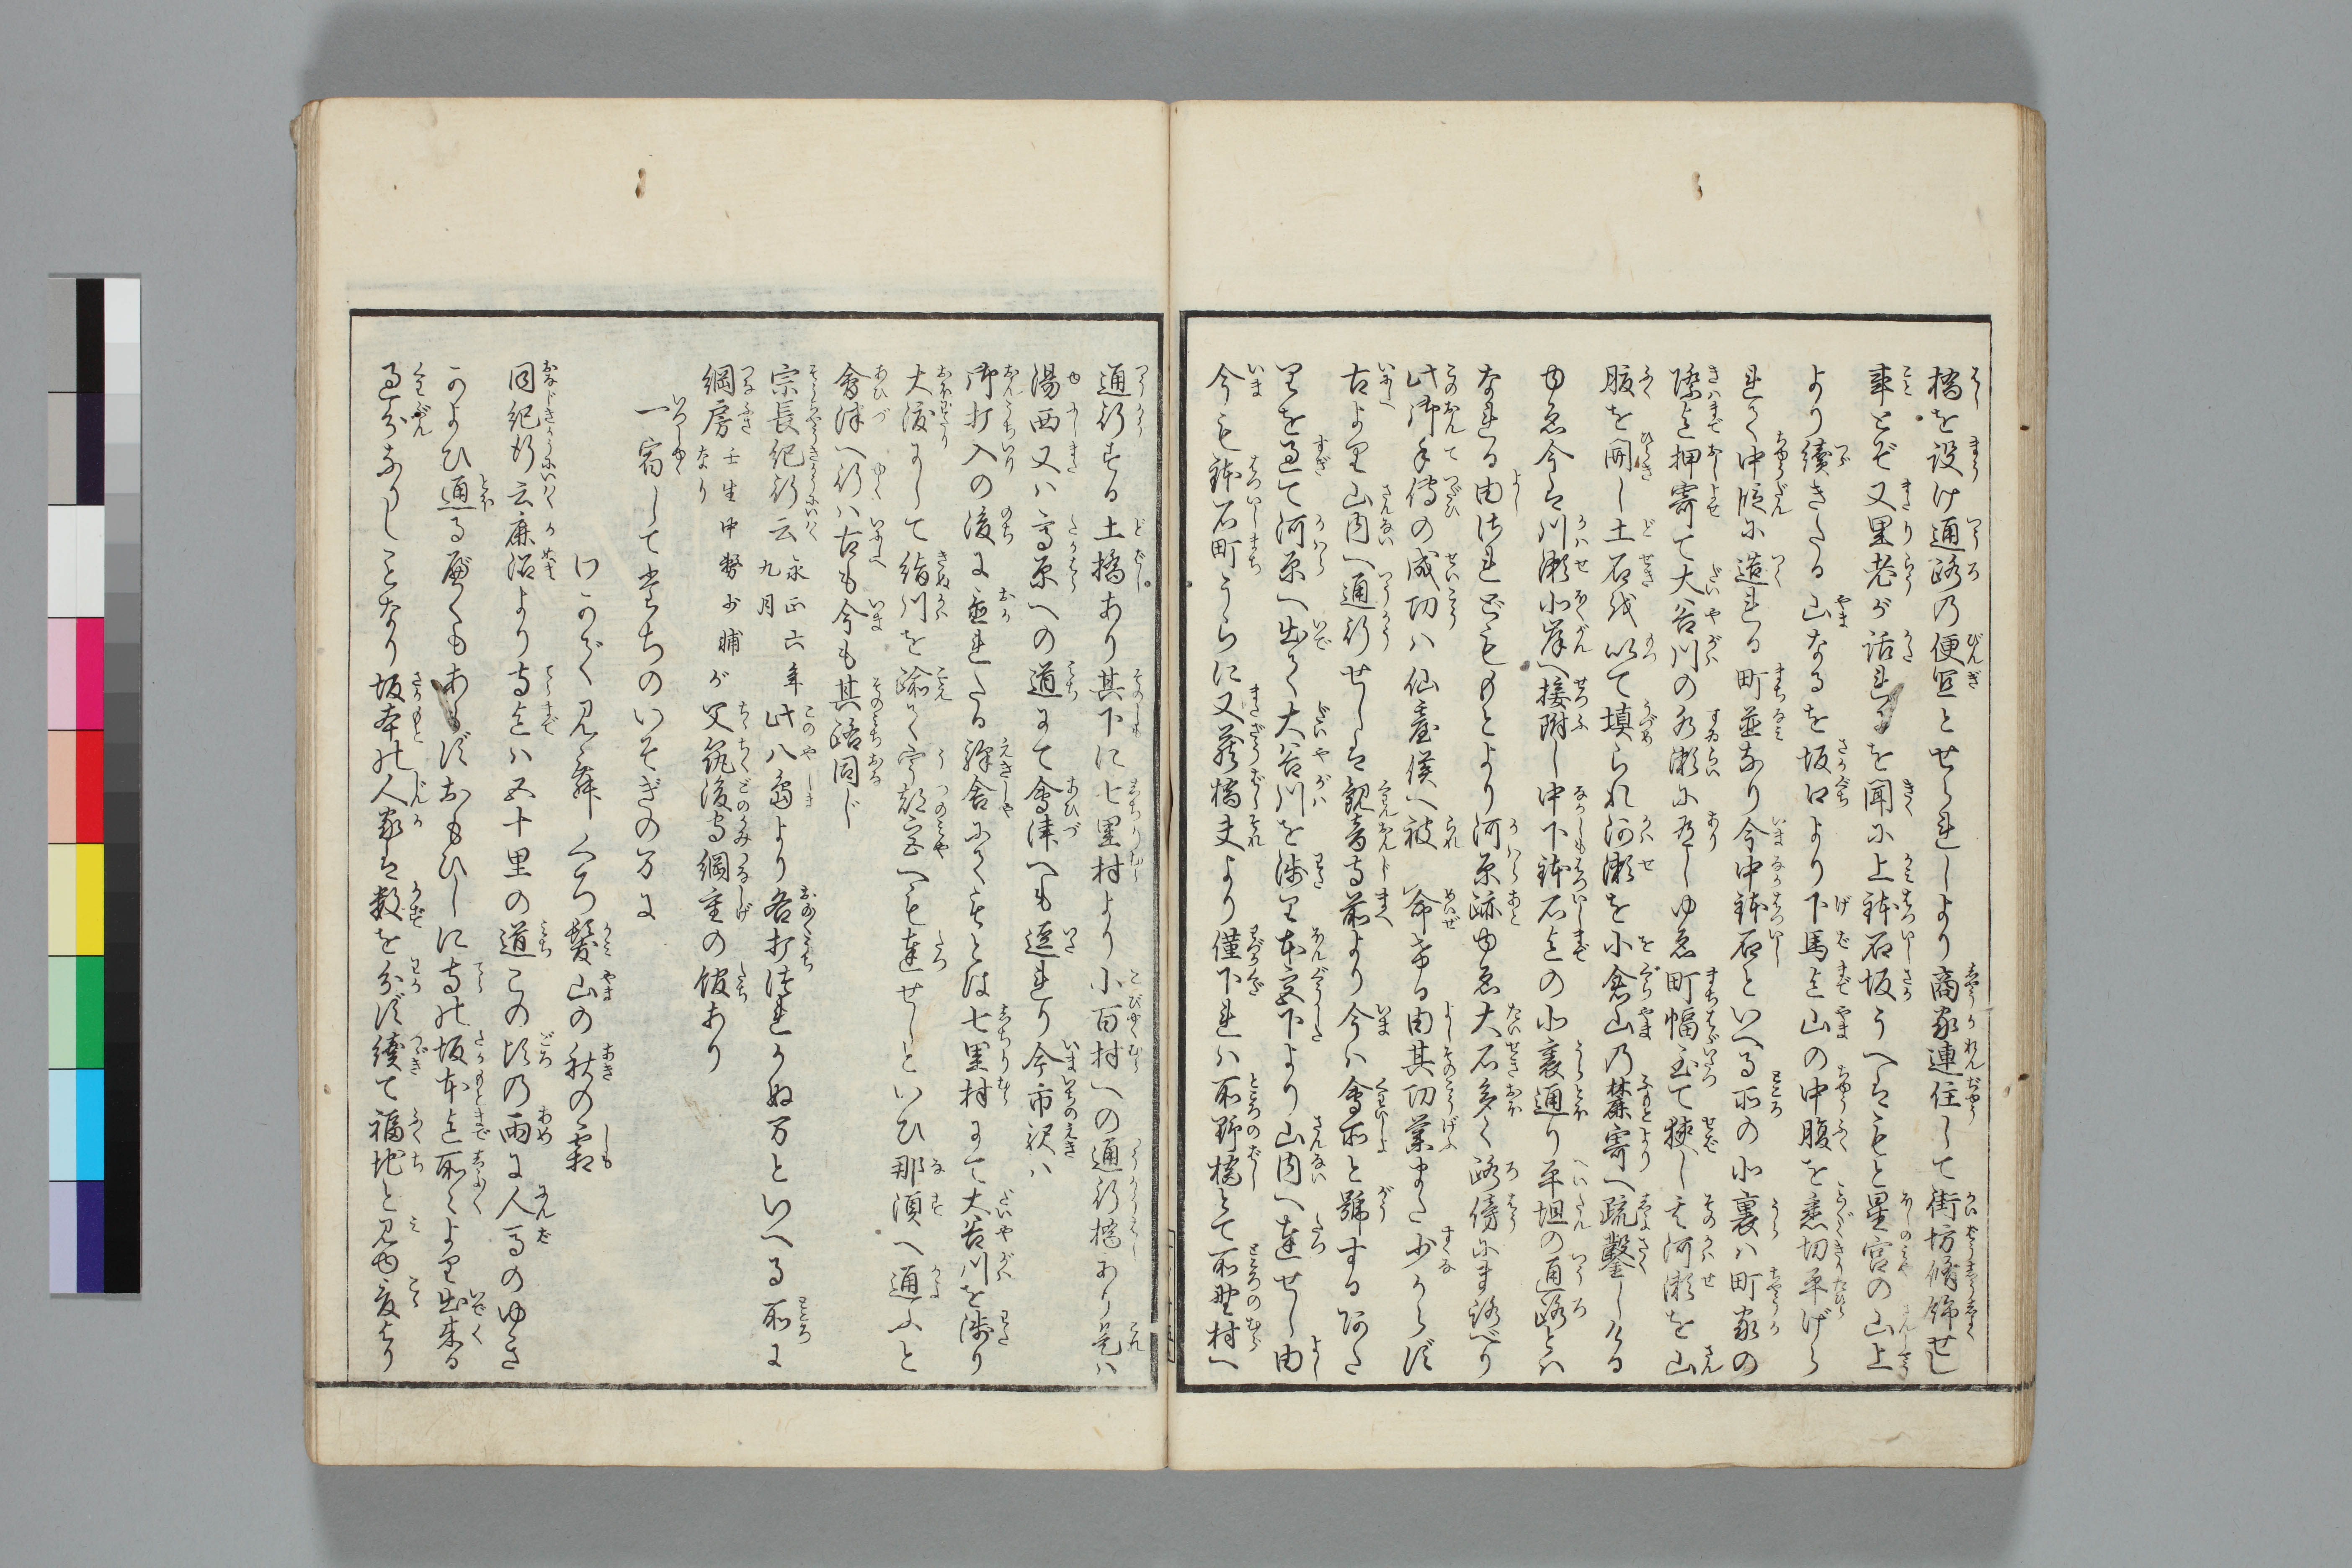 橋を設け通路の便宜とせられしより商家連住して街坊脩飾せし
事とぞ又里老が話れるを聞に上鉢石坂うへはもと星宮の山上
より続きたる山なるを坂口より下馬迄山の中腹を悉切平げら
れて中段に造れる町並なり今中鉢石といへる所の北裏は町家の
際迄押寄て大谷川の水瀬に有しゆゑ町幅至て狭し其河瀬を山
腹を開し土石を以て填られ河瀬を小倉山の麓寄へ疏鑿しける
ゆゑ今は川瀬北岸へ接附し中下鉢石迄の北裏通り平坦の通路とは
なれる由されどももとより河原跡ゆゑ大石多く路傍にまろべり
此御手伝の成功は仙台侯へ被命ける由其功業また少からず
古より山内へ通行せしは観音寺前より今は会所と号する所した
里を過て河原へ出て大谷川を渉り本宮下より山内へ達せし由
今も鉢石町うらに又蔵橋夫より僅下れは所野橋とて所野村へ
通行する土橋あり其下に七里村より小百村への通行橋あり是は
湯西又は高原への道にて会津へも通れり今市沢は
御打入の後に置れたる駅舎にてもとは七里村にて大谷川を渉り
大渡にして絹川を踰て宇都宮へも達せしといひ那須へ通ふと
会津へ行は古も今も其路同じ
宗長紀行云永正六年九月此八島より各打つれかぬ万といへる所に
綱房壬生中務少輔が父筑後守綱重の館あり
なり
一宿して是ちのいそぎの万に
けのかて見舞くろ髪山の秋の霜
同紀行云鹿沼より寺迄は五十里の道この比の雨に人馬のゆき
かよひ通る遍くもあらずおもひしに寺の坂本迄所々より出来る
過分なりしことなり坂本の人家は数を分ず続て福地と見ゆ京より